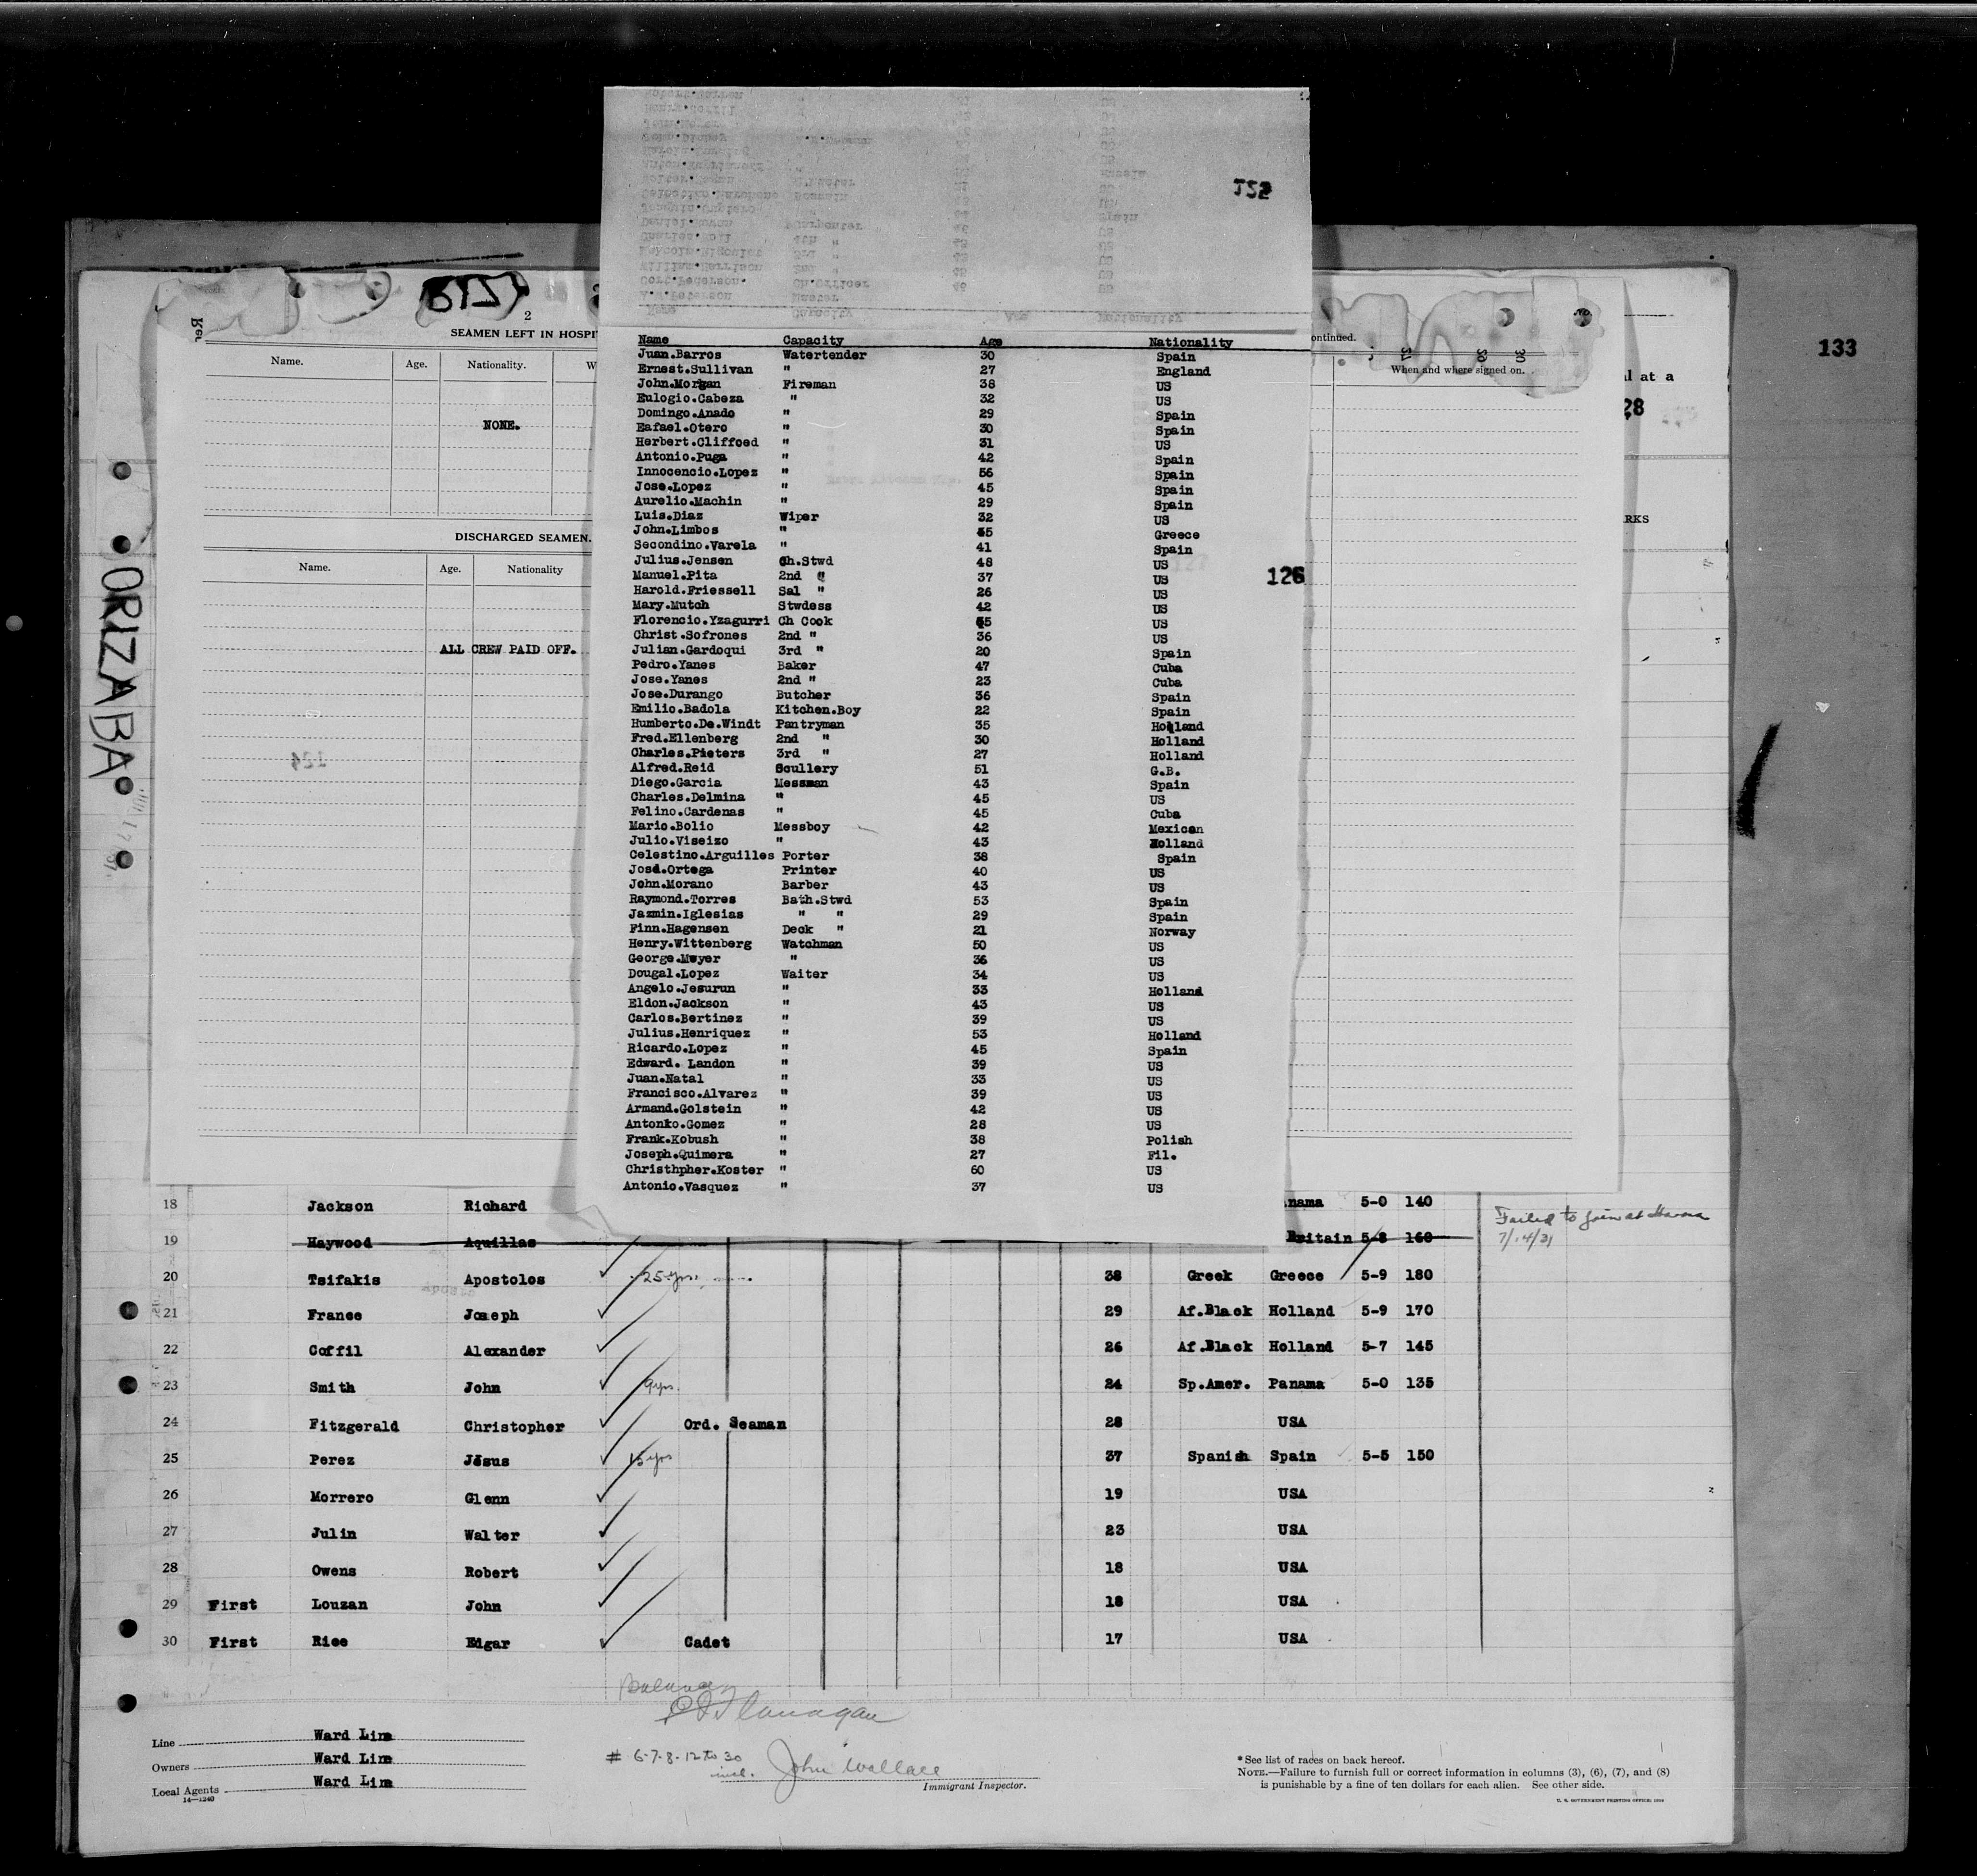 133
2
SEAMEN LEFT IN HOSPI
Name. Age. Nationality. W
NONE.
DISCHARGED SEAMEN.
Name. Age. Nationality
ALL CREW PAID OFF.
ORIZABA
ontinued.
When and where signed on.
l at a
28
RKS
Name Capacity Age Nationality
Juan.Barros Watertender 30 Spain
Ernest.Sullivan " 27 England
John.Morgan Fireman 38 US
Eulogio.Cabeza " 32 US
Domingo.Anado " 29 Spain
Eafael.Otero " 30 Spain
Herbert.Cliffoed " 31 US
Antonio.Puga " 42 Spain
Innocencio.Lopez " 56 Spain
Jose.Lopez " 45 Spain
Aurelio.Machin " 29 Spain
Luis.Diaz Wiper 32 US
John.Limbos " Greece
Secondino.Varela " 41 Spain
Julius.Jensen Ch.Stwd 48 US
Manuel.Pita 2nd " 37 US
126
Harold.Friessell Sal " 26 US
Mary.Mutch Stwdess 42 US
Florencio.Yzagurri Ch Cook US
Christ.Sofrones 2nd " 36 US
Julian.Gardoqui 3rd " 20 Spain
Pedro.Yanes Baker 47 Cuba
Jose.Yanes 2nd " 23 Cuba
Jose.Durango Butcher 36 Spain
Emilio.Badola Kitchen.Boy 22 Spain
Humberto.De.Windt Pantryman 35 Holland
Fred.Ellenberg 2nd " 30 Holland
Charles.Pieters 3rd " 27 Holland
Alfred.Reid Scullery 51 G.B.
Diego.Garcia Messman 43 Spain
Charles.Delmina " 45 US
Felino.Cardenas " 45 Cuba
Mario.Bolio Messboy 42 Mexican
Julio.Viseizo " 43 Holland
Celestino.Arguilles Porter 38 Spain
José.Ortega Printer 40 US
John.Morano Barber 43 US
Raymond.Torres Bath.Stwd 53 Spain
Jazmin.Iglesias " " 29 Spain
Finn.Hagensen Deck " 21 Norway
Henry.Wittenberg Watchman 50 US
George.Mwyer " 36 US
Dougal.Lopez Waiter 34 US
Angelo.Jesurun " 33 Holland
Eldon.Jackson " 43 US
Carlos.Bertinez " 39 US
Julius.Henriquez " 53 Holland
Ricardo.Lopez " 45 Spain
Edward. Landon " 39 US
Juan.Natal " 33 US
Francisco.Alvarez " 39 US
Armand.Golstein " 42 US
Antonio.Gomez " 28 US
Frank.Kobush " 38 Polish
Joseph.Quimera " 27 Fil.
Christhpher.Koster " 60 US
Antonio.Vasquez " 37 US
18 Jackson Richard nama 5-0 140
Failed to join at Havana
7/14/31
19 Haywood Aquillas Britain 5-8 160
20 Tsifakis Apostolos 25 yrs. 38 Greek Greece 5-9 180
21 Franee Joseph 29 Af.Black Holland 5-9 170
22 Coffil Alexander 26 Af.Black Holland 5-7 145
23 Smith John 9 yrs. 24 Sp.Amer. Panama 5-0 135
24 Fitzgerald Christopher Ord. Seaman 28 USA
25 Perez Jesus 15 yrs 37 Spanish Spain 5-5 150
26 Morrero Glenn 19 USA
27 Julin Walter 23 USA
28 Owens Robert 18 USA
29 First Louzan John 18 USA
30 First Rice Edgar Cadet 17 USA
Flanagan
Line Ward Line
Owners Ward Line
Local Agents Ward Line
14—1240
# 6-7-8-12 to 30
incl.
John Wallace
Immigrant Inspector.
*See list of races on back hereof.
NOTE.—Failure to furnish full or correct information in columns (3), (6), (7), and (8)
is punishable by a fine of ten dollars for each alien. See other side.